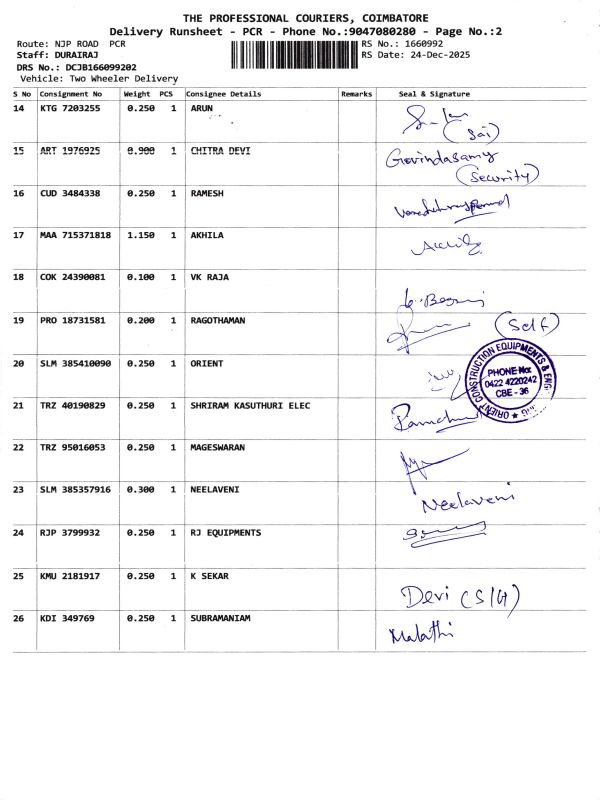 THE PROFESSIONAL COURIERS, COIMBATORE
Delivery Runsheet - PCR - Phone No.:9047080280 - Page No.:2
Route: NJP ROAD PCR
RS No.: 1660992
Staff: DURAIRAJ
RS Date: 24-Dec-2025
DRS No.: DCJB166099202
Vehicle: Two Wheeler Delivery
S No Consignment No Weight PCS Consignee Details Remarks Seal & Signature
14 KTG 7203255 0.250 1 ARUN
(Sai)
15 ART 1976925 0.900 1 CHITRA DEVI Govindasamy
(Security)
16 CUD 3484338 0.250 1 RAMESH
17 MAA 715371818 1.150 1 AKHILA
18 COK 24390081 0.100 1 VK RAJA
19 PRO 18731581 0.200 1 RAGOTHAMAN (Self)
20 SLM 385410090 0.250 1 ORIENT
ORIENT CONSTRUCTION EQUIPMENTS & ENGG
PHONE No:
0422 4220242
CBE - 36
21 TRZ 40190829 0.250 1 SHRIRAM KASUTHURI ELEC
22 TRZ 95016053 0.250 1 MAGESWARAN
23 SLM 385357916 0.300 1 NEELAVENI Neelaveni
24 RJP 3799932 0.250 1 RJ EQUIPMENTS
25 KMU 2181917 0.250 1 K SEKAR Devi (S/H)
26 KDI 349769 0.250 1 SUBRAMANIAM Malathi